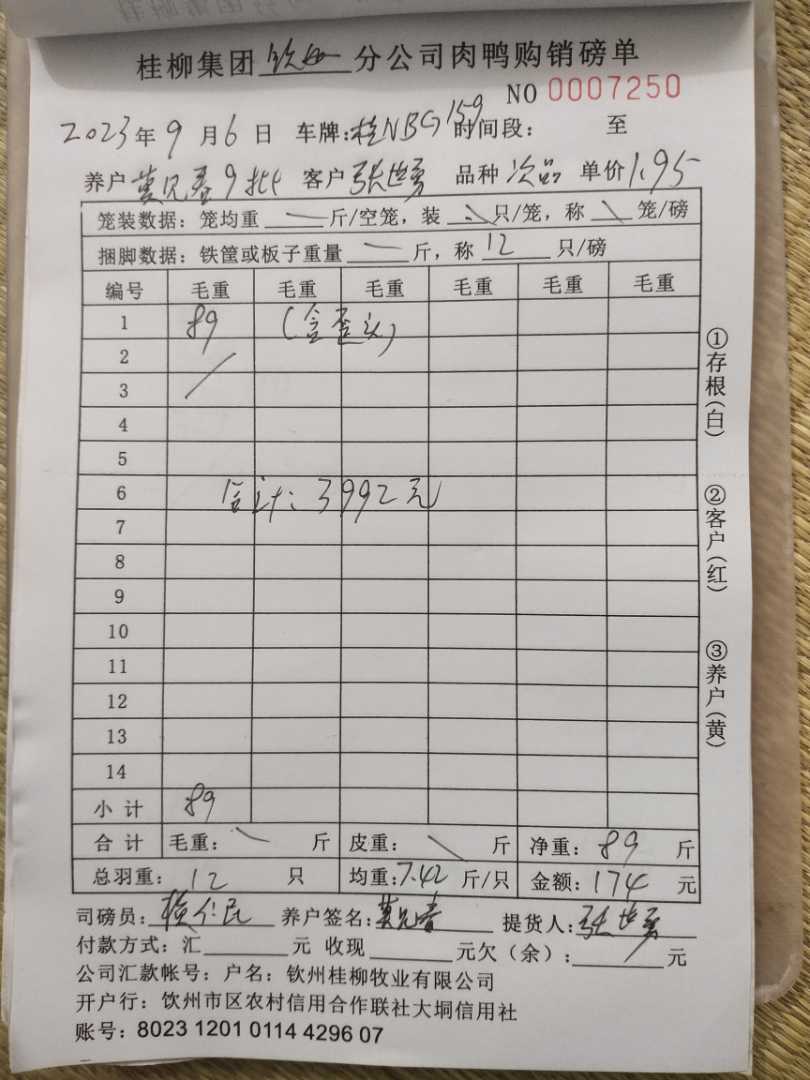 桂柳集团 钦州 分公司肉鸭购销磅单
NO 0007250
2023年9月6日 车牌:桂NBG159 时间段: 至
养户 莫兄春9批 客户 张世勇 品种 次品 单价 1.95
笼装数据: 笼均重 — 斤/空笼, 装 、 只/笼, 称 \ 笼/磅
捆脚数据: 铁筐或板子重量 — 斤, 称 12 只/磅
编号 毛重 毛重 毛重 毛重 毛重 毛重
1 89 (含歪头)
2
3
4
5
6 合计: 3992元
7
8
9
10
11
12
13
14
小计 89
合计 毛重: \ 斤 皮重: \ 斤 净重: 89 斤
总羽重: 12 只 均重: 7.42 斤/只 金额: 174 元
司磅员: 仁民 养户签名: 莫兄春 提货人: 张世勇
付款方式: 汇 元 收现 元欠(余): 元
公司汇款帐号: 户名: 钦州桂柳牧业有限公司
开户行: 钦州市区农村信用合作联社大垌信用社
账号: 8023 1201 0114 4296 07
①存根(白)
②客户(红)
③养户(黄)